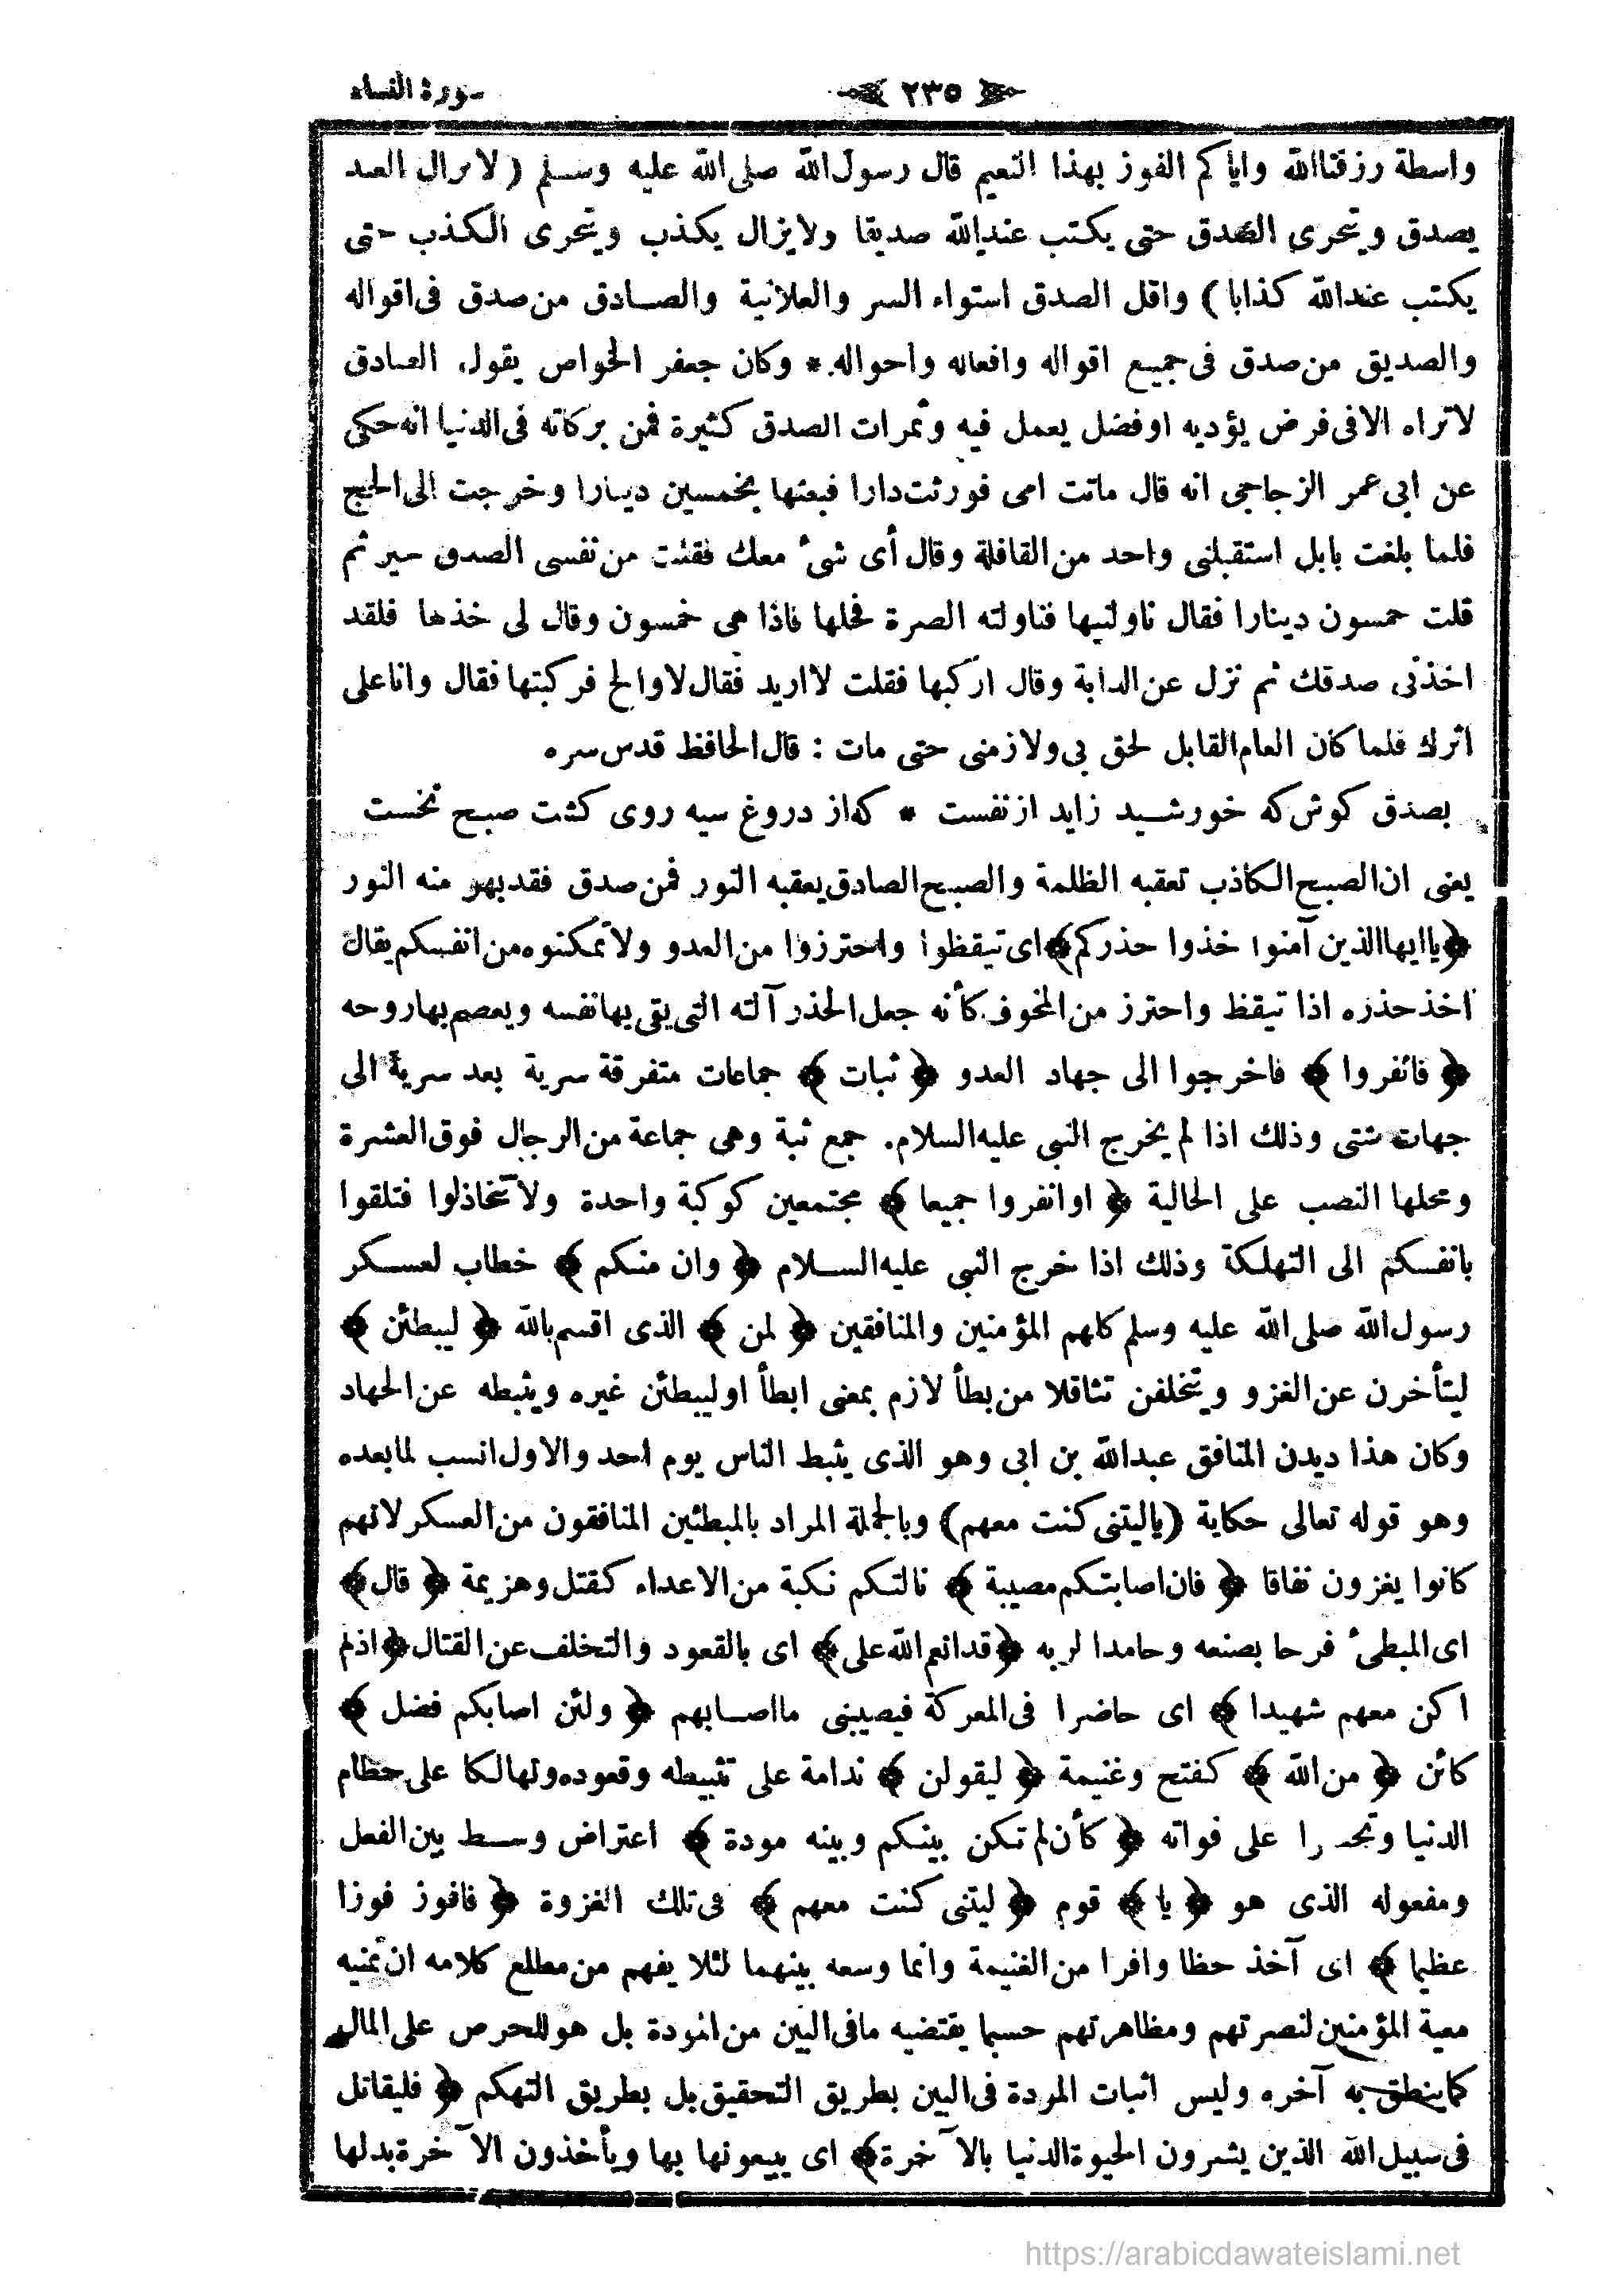 سورة النساء
﴿ ٢٣٥ ﴾
واسطة رزقنا الله واياكم الفوز بهذا النعيم قال رسول الله صلى الله عليه وسلم (لا يزال العبد
يصدق ويتحرى الصدق حتى يكتب عند الله صديقا ولا يزال يكذب ويتحرى الكذب حتى
يكتب عند الله كذابا) واقل الصدق استواء السر والعلانية والصادق من صدق فى اقواله
والصديق من صدق فى جميع اقواله وافعاله واحواله * وكان جعفر الخواص يقول الصادق
لا تراه الا فى فرض يؤديه او فضل يعمل فيه وثمرات الصدق كثيرة فمن بركاته فى الدنيا انه حكى
عن ابى عمر الزجاجى انه قال ماتت امى فورثت دارا فبعتها بخمسين دينارا وخرجت الى الحج
فلما بلغت بابل استقبلنى واحد من القافلة وقال أى شئ معك فقلت من نفسى الصدق خير ثم
قلت خمسون دينارا فقال ناولنيها فناولته الصرة فحلها فاذا هى خمسون وقال لى خذها فلقد
اخذنى صدقك ثم نزل عن الدابة وقال اركبها فقلت لا اريد فقال لا والح فركبتها فقال وانا على
اثرك فلما كان العام القابل لحق بى ولازمنى حتى مات : قال الحافظ قدس سره
بصدق كوش كه خورشيد زايد از نفست * كه از دروغ سيه روى كشت صبح نخست
يعنى ان الصبح الكاذب تعقبه الظلمة والصبح الصادق يعقبه النور فمن صدق فقد بهر منه النور
﴿يا ايها الذين آمنوا خذوا حذركم﴾ اى تيقظوا واحترزوا من العدو ولا تمكنوه من انفسكم يقال
اخذ حذره اذا تيقظ واحترز من المخوف كأنه جعل الحذر آلته التى يقى بها نفسه ويعصم بها روحه
﴿ فانفروا ﴾ فاخرجوا الى جهاد العدو ﴿ ثبات ﴾ جماعات متفرقة سرية بعد سرية الى
جهات شتى وذلك اذا لم يخرج النبى عليه السلام. جمع ثبة وهى جماعة من الرجال فوق العشرة
ومحلها النصب على الحالية ﴿ او انفروا جميعا ﴾ مجتمعين كوكبة واحدة ولا تتخاذلوا فتلقوا
بانفسكم الى التهلكة وذلك اذا خرج النبى عليه السلام ﴿ وان منكم ﴾ خطاب لعسكر
رسول الله صلى الله عليه وسلم كلهم المؤمنين والمنافقين ﴿ لمن ﴾ الذى اقسم بالله ﴿ ليبطئن ﴾
ليتأخرن عن الغزو ويتخلفن تثاقلا من بطأ لازم بمعنى ابطأ او ليبطئن غيره ويثبطه عن الجهاد
وكان هذا ديدن المنافق عبد الله بن ابى وهو الذى يثبط الناس يوم احد والاول انسب لما بعده
وهو قوله تعالى حكاية (يا ليتنى كنت معهم) وبالجملة المراد بالمبطئين المنافقون من العسكر لانهم
كانوا يغزون نفاقا ﴿ فان اصابتكم مصيبة ﴾ نالتكم نكبة من الاعداء كقتل وهزيمة ﴿ قال ﴾
اى المبطئ فرحا بصنعه وحامدا لربه ﴿قد انعم الله على﴾ اى بالقعود والتخلف عن القتال ﴿اذ لم
اكن معهم شهيدا ﴾ اى حاضرا فى المعركة فيصيبنى ما اصابهم ﴿ ولئن اصابكم فضل ﴾
كائن ﴿ من الله ﴾ كفتح وغنيمة ﴿ ليقولن ﴾ ندامة على تثبيطه وقعوده وتهالكا على حطام
الدنيا وتحسرا على فواته ﴿ كأن لم تكن بينكم وبينه مودة ﴾ اعتراض وسط بين الفعل
ومفعوله الذى هو ﴿ يا ﴾ قوم ﴿ ليتنى كنت معهم ﴾ فى تلك الغزوة ﴿ فافوز فوزا
عظيما ﴾ اى آخذ حظا وافرا من الغنيمة وانما وسعه بينهما لئلا يفهم من مطلع كلامه ان تمنيه
معية المؤمنين لنصرتهم ومظاهرتهم حسبما يقتضيه ما فى البين من المودة بل هو للحرص على المال
كما ينطق به آخره وليس اثبات المودة فى البين بطريق التحقيق بل بطريق التهكم ﴿ فليقاتل
فى سبيل الله الذين يشرون الحيوة الدنيا بالآخرة﴾ اى يبيعونها بها ويأخذون الآخرة بدلها
https://arabicdawateislami.net